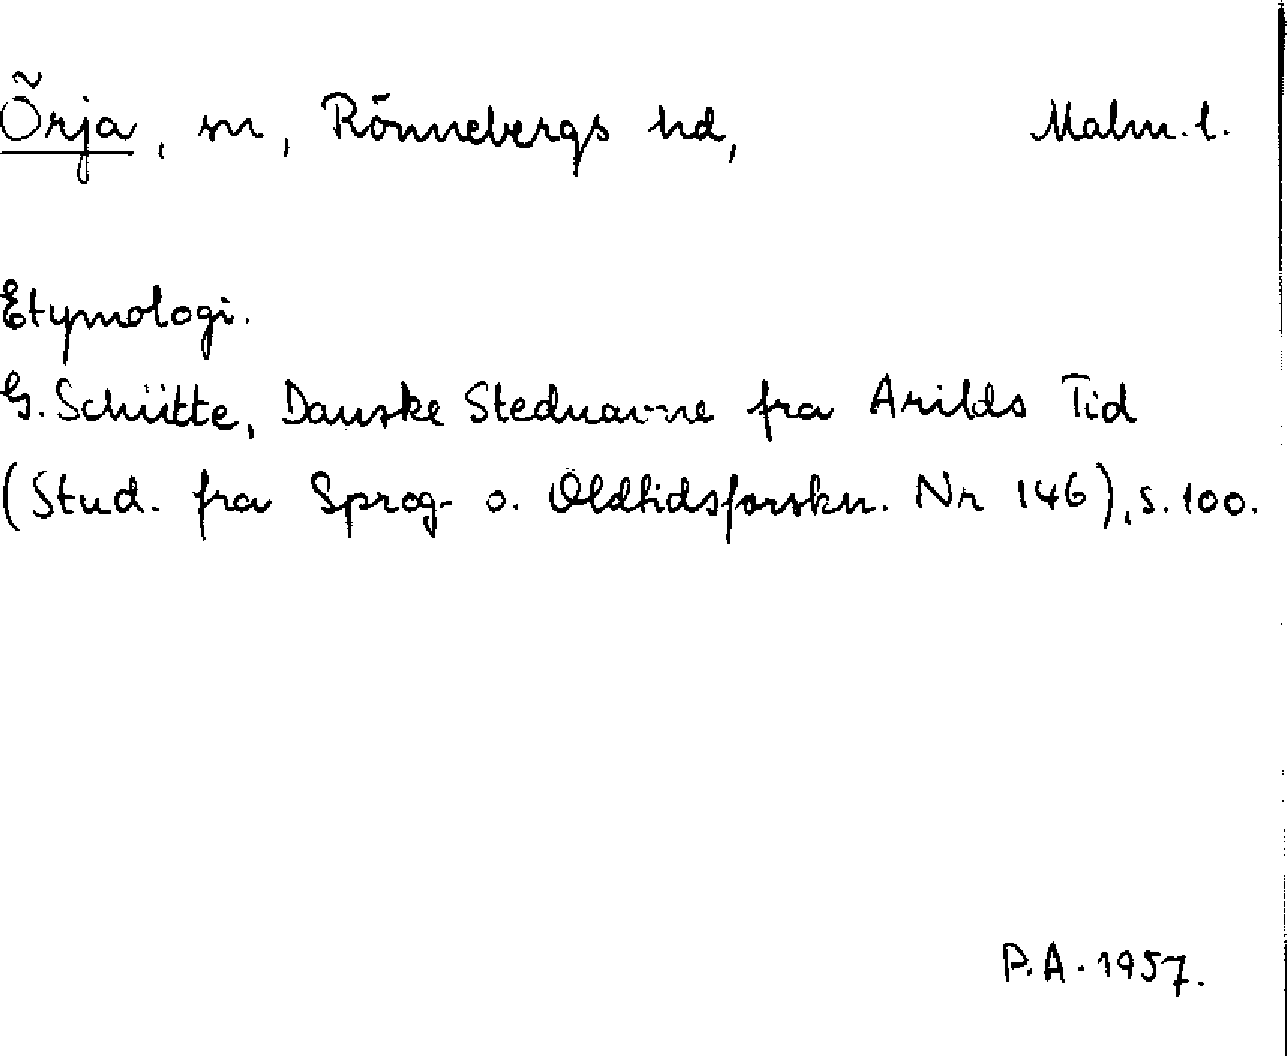 Örja, sn, Rönnebergs hd, Malm. l.
Etymologi.
G. Schütte, Danske Stednavne fra Arilds Tid
(Stud. fra Sprog- o. Oldtidsforskn. Nr 146), s. 100.
P.A. 1957.